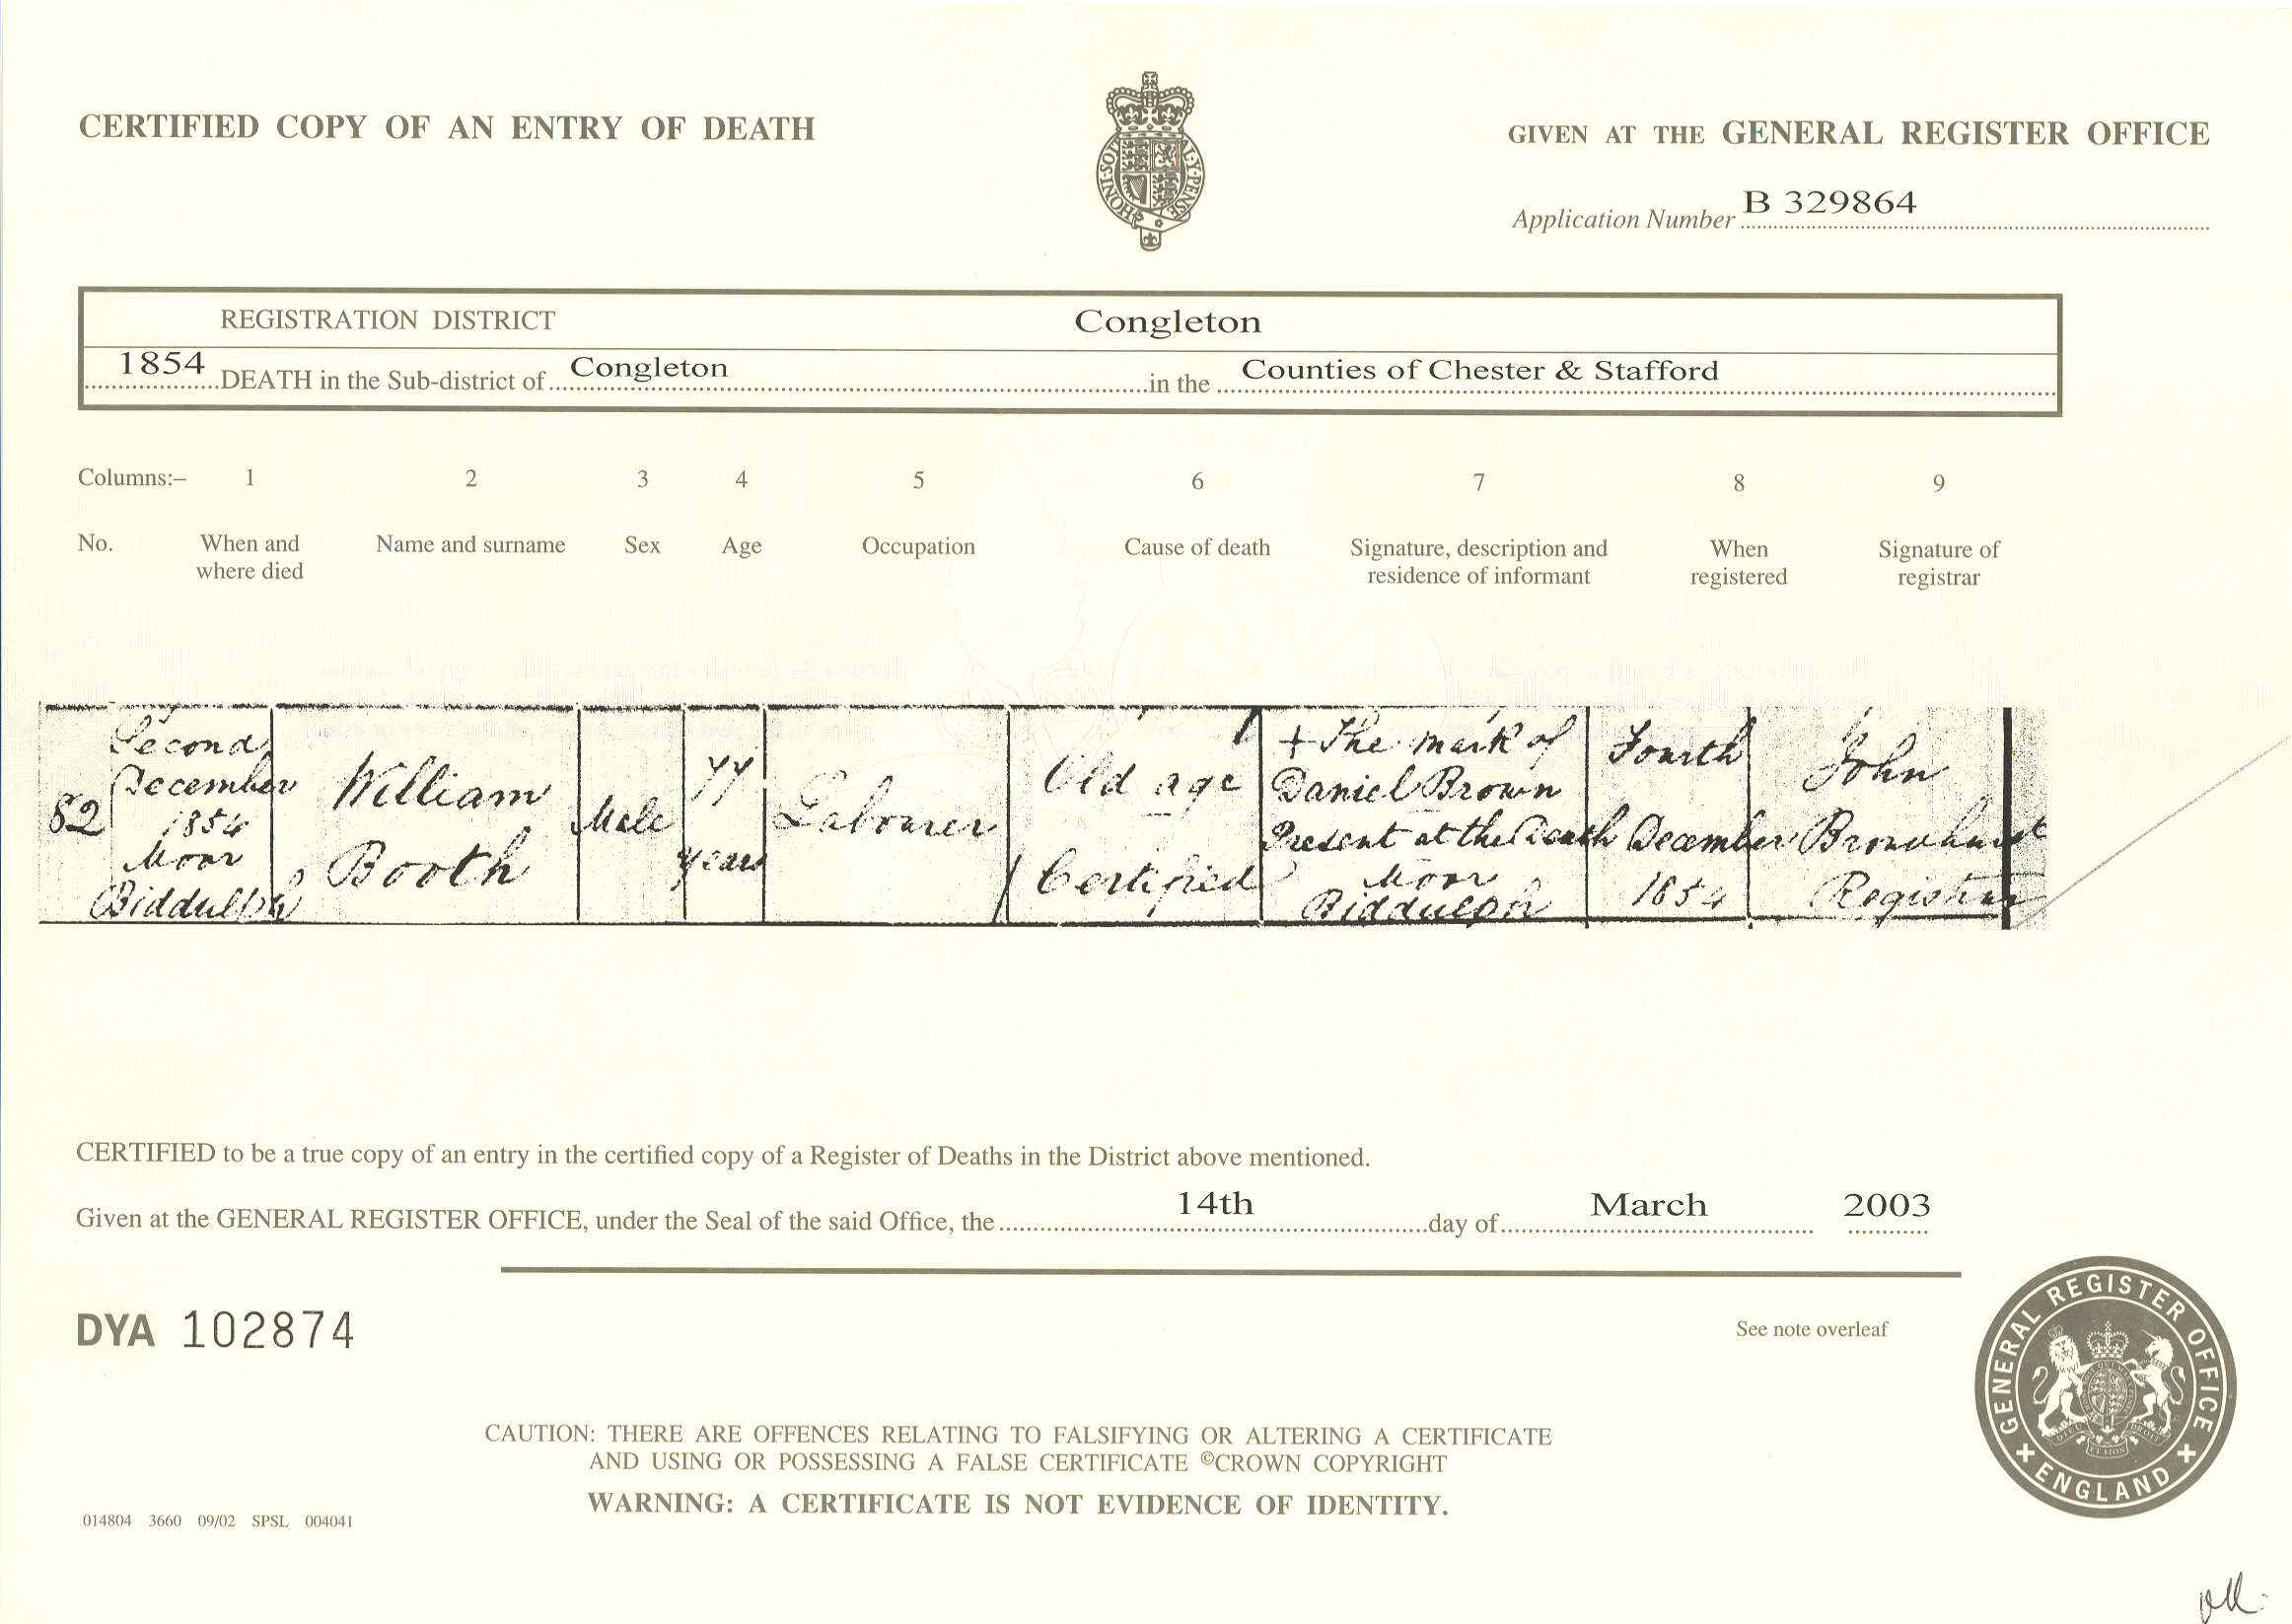 CERTIFIED COPY OF AN ENTRY OF DEATH
GIVEN AT THE GENERAL REGISTER OFFICE
HONI·SOIT Y·PENSE
Application Number B 329864
REGISTRATION DISTRICT Congleton
1854 DEATH in the Sub-district of Congleton in the Counties of Chester & Stafford
Columns:– 1 2 3 4 5 6 7 8 9
No. When and where died Name and surname Sex Age Occupation Cause of death Signature, description and residence of informant When registered Signature of registrar
82
Second
December
1854
Moor
Biddulph
William
Booth
Male
77
years
Labourer
Old age
Certified
+ The mark of
Daniel Brown
Present at the Death
Moor
Biddulph
Fourth
December
1854
John
Registrar
CERTIFIED to be a true copy of an entry in the certified copy of a Register of Deaths in the District above mentioned.
Given at the GENERAL REGISTER OFFICE, under the Seal of the said Office, the 14th day of March 2003
DYA 102874
See note overleaf
GENERAL REGISTER OFFICE
ENGLAND
CAUTION: THERE ARE OFFENCES RELATING TO FALSIFYING OR ALTERING A CERTIFICATE
AND USING OR POSSESSING A FALSE CERTIFICATE ©CROWN COPYRIGHT
WARNING: A CERTIFICATE IS NOT EVIDENCE OF IDENTITY.
014804 3660 09/02 SPSL 004041